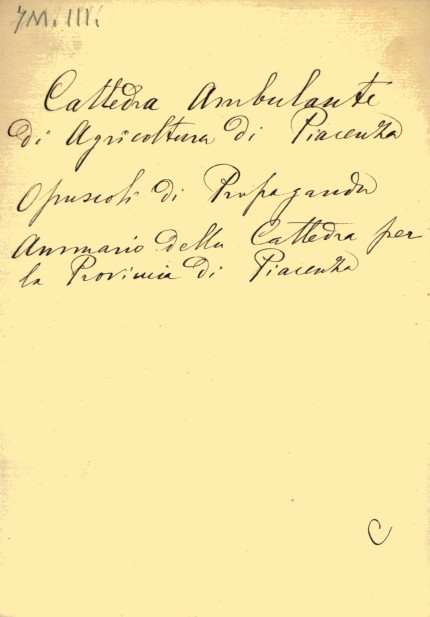 7M. III.
Cattedra Ambulante
di Agricoltura di Piacenza
Opuscoli di Propaganda
Annuario della Cattedra per
la Provincia di Piacenza
C